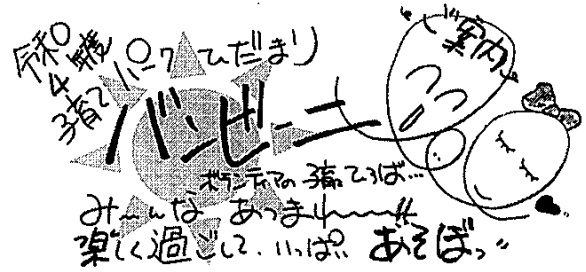 令和4年度
子育てパークひだまり
バンビーニ
"ご案内"
ボランティアの子育てひろば…
み〜んな あつまれ〜〜!!
楽しく過ごして、いっぱい あそぼっ"